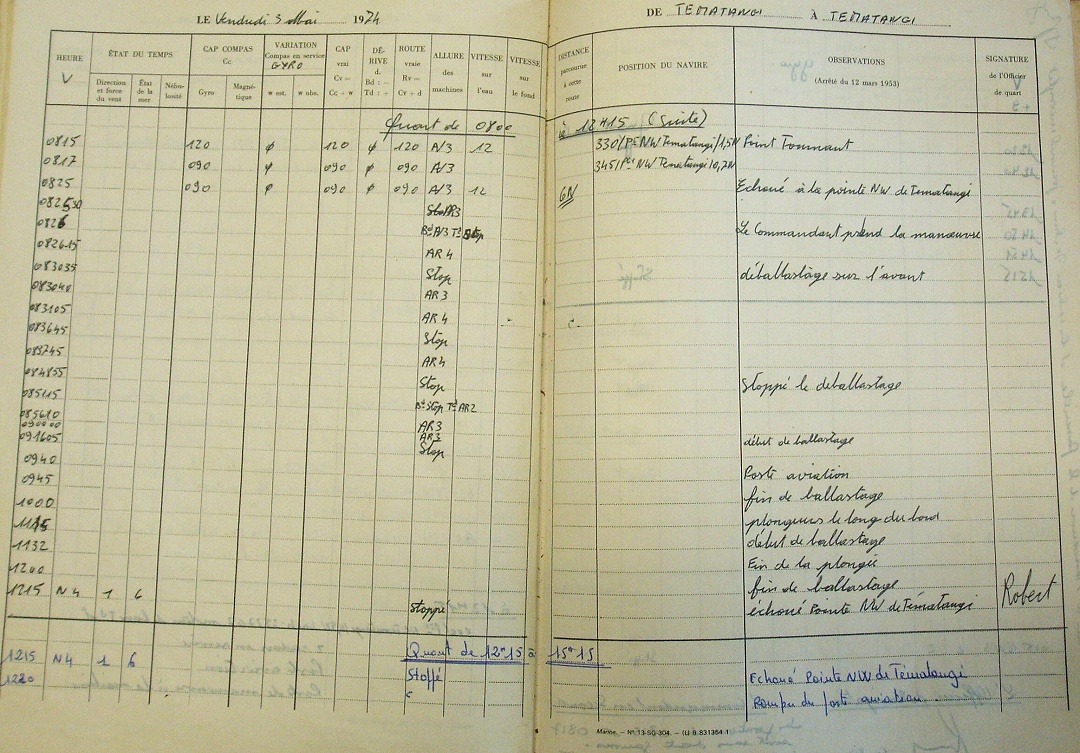 LE Vendredi 3 Mai 1974
DE TEMATANGI À TEMATANGI
HEURE
V
ÉTAT DU TEMPS
Direction et force du vent
État de la mer
Nébulosité
CAP COMPAS Cc
Gyro
Magnétique
VARIATION Compas en service
GYRO
w est.
w obs.
CAP vrai Cv = Cc + w
DÉRIVE d. Bd : − Td : +
ROUTE vraie Rv = Cv + d
ALLURE des machines
VITESSE sur l'eau
VITESSE sur le fond
DISTANCE parcourue à cette route
POSITION DU NAVIRE
OBSERVATIONS
(Arrêté du 12 mars 1953)
SIGNATURE de l'Officier de quart
Quart de 0800 à 12H15 (Suite)
0815 120 φ 120 φ 120 A/3 12 330/Pte NW Tematangi/1,5N Point Tournant
0817 090 φ 090 φ 090 A/3 345/Pte NW Tematangi/0,7N
0825 090 φ 090 φ 090 A/3 12 GN Echoué à la pointe NW de Tematangi
082530 AR3
0826 Bd A/3 Td Stop Le Commandant prend la manœuvre
082615 AR4
083035 Stop déballastage sur l'avant
083040 AR3
083105 AR4
083645 Stop
083745 AR4
084855 Stop Stoppé le deballastage
085115 Bd Stop Td AR2
085610 AR3
090000 AR3
091605 Stop début de ballastage
0940 Poste aviation
0945 fin de ballastage
1000 plongeurs le long du bord
1115 début de ballastage
1132 Fin de la plongée
1200 fin de ballastage
1215 N4 1 6 Stoppé échoué Pointe NW de Tématangi Robert
Quart de 12H15 à 15H15
1215 N4 1 6 Stoppé Echoué Pointe NW de Tématangi
1220 Rompu du poste aviation
Marine. — N° 13-SG-304. — (L) B. 831364-1